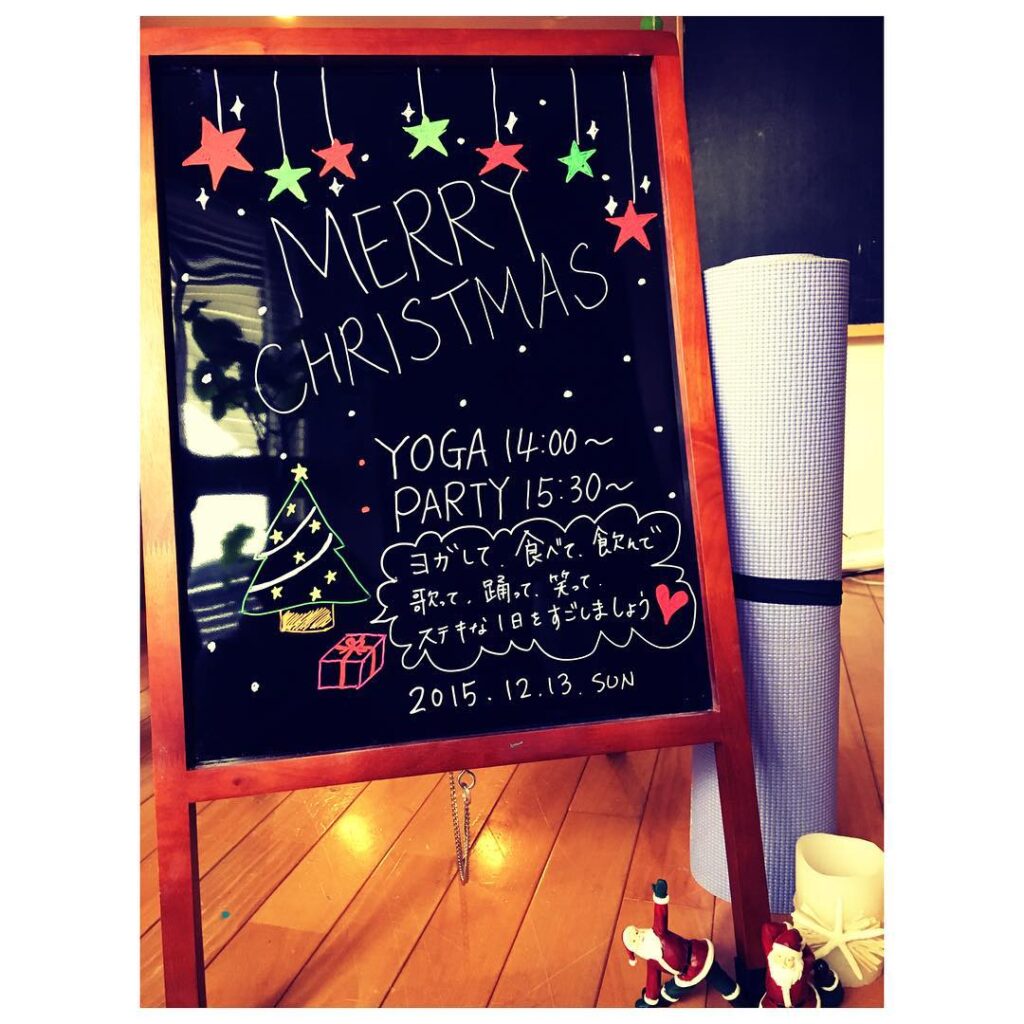 MERRY
CHRISTMAS
YOGA 14:00~
PARTY 15:30~
ヨガして、食べて、飲んで
歌って、踊って、笑って、
ステキな1日をすごしましょう
2015.12.13.SUN